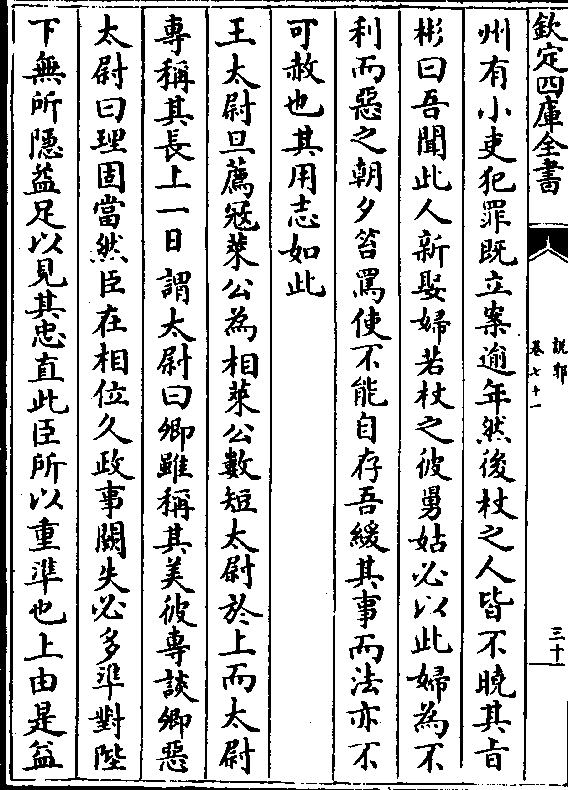 欽定四庫全書
說郛
卷七十一
三十
州有小吏犯罪既立案逾年然後杖之人皆不曉其旨
彬曰吾聞此人新娶婦若杖之彼舅姑必以此婦為不
利而惡之朝夕笞罵使不能自存吾緩其事而法亦不
可赦也其用志如此
王太尉旦薦冦萊公為相萊公數短太尉於上而太尉
專稱其長上一日謂太尉曰卿雖稱其美彼專談卿惡
太尉曰理固當然臣在相位久政事闕失必多準對陛
下無所隱益足以見其忠直此臣所以重準也上由是益